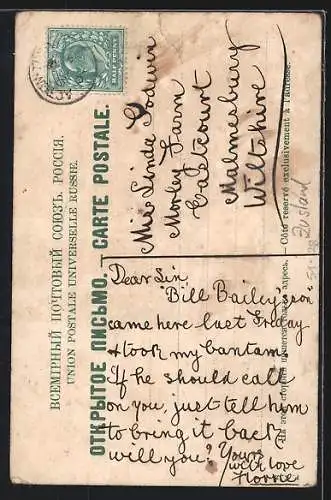 ВСЕМІРНЫЙ ПОЧТОВЫЙ СОЮЗЪ. РОССІЯ.
UNION POSTALE UNIVERSELLE RUSSIE.
ОТКРЫТОЕ ПИСЬМО. CARTE POSTALE.
HALF PENNY
Miss Linda Godwin
Morley Farm
Eastcourt
Malmesbury
Wiltshire
Côté réservé exclusivement à l'adresse.
На этой сторонѣ адресъ.
Zustand
Dear Lin
"Bill Bailey's son"
came here last Friday
& took my bantam.
If he should call
on you, just tell him
to bring it back
will you? Yours
with love
Florrie